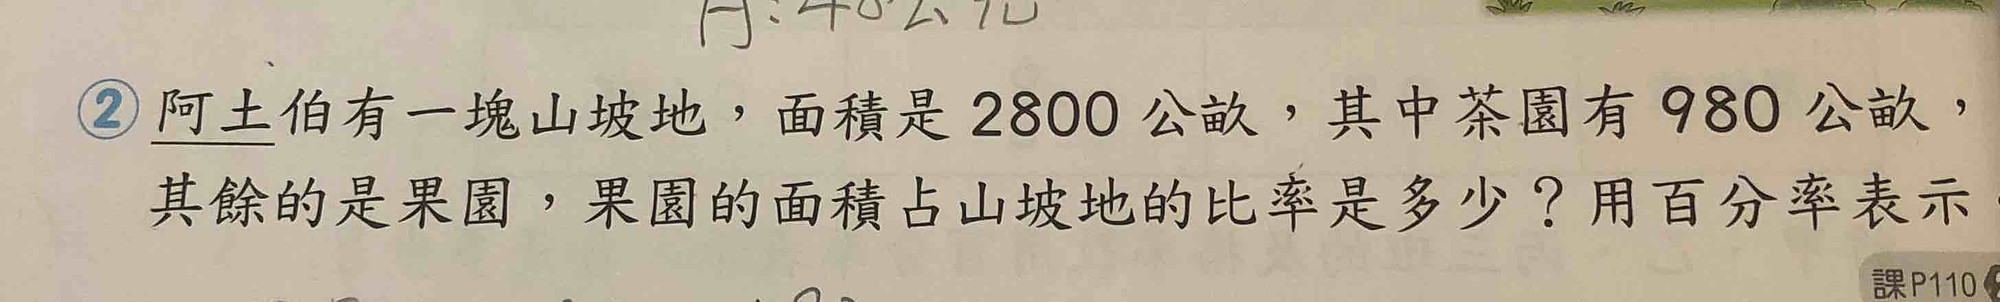 ② 阿土伯有一塊山坡地，面積是 2800 公畝，其中茶園有 980 公畝，
其餘的是果園，果園的面積占山坡地的比率是多少？用百分率表示
課P110